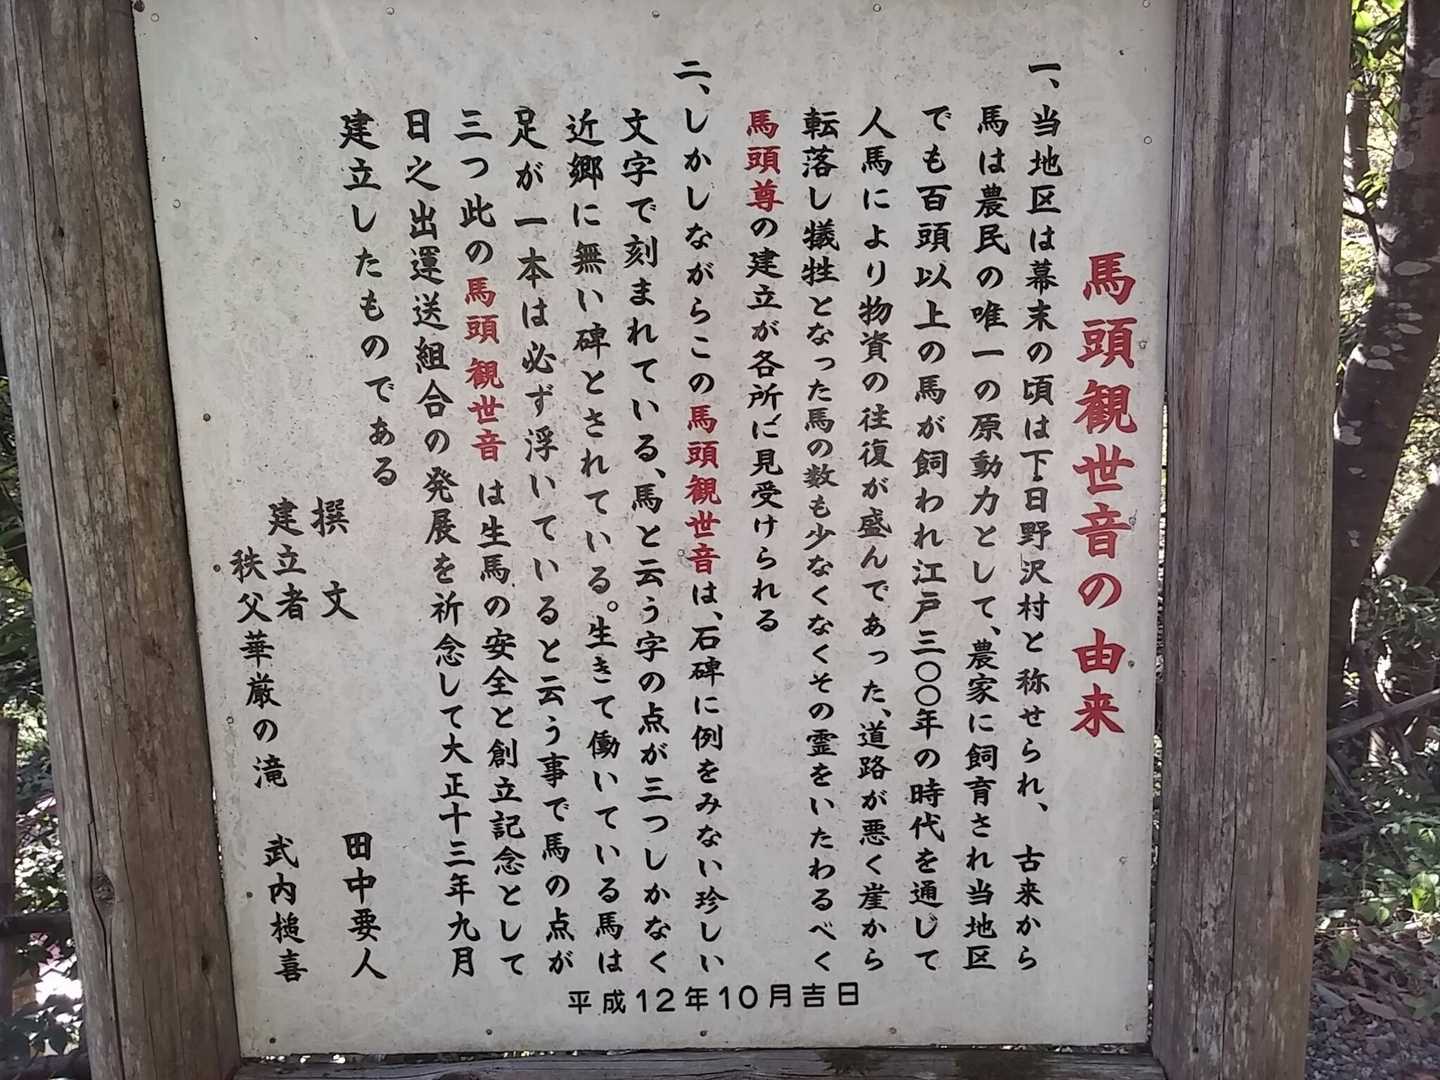 馬頭観世音の由来
一、当地区は幕末の頃は下日野沢村と称せられ、古来から
馬は農民の唯一の原動力として、農家に飼育され当地区
でも百頭以上の馬が飼われ江戸三〇〇年の時代を通じて
人馬により物資の往復が盛んであった、道路が悪く崖から
転落し犠牲となった馬の数も少なくなくその霊をいたわるべく
馬頭尊の建立が各所に見受けられる
二、しかしながらこの馬頭観世音は、石碑に例をみない珍しい
文字で刻まれている、馬と云う字の点が三つしかなく
近郷に無い碑とされている。生きて働いている馬は
足が一本は必ず浮いていると云う事で馬の点が
三つ此の馬頭観世音は生馬の安全と創立記念として
日之出運送組合の発展を祈念して大正十三年九月
建立したものである
撰文 田中要人
建立者 武内槌喜
秩父華厳の滝
平成12年10月吉日